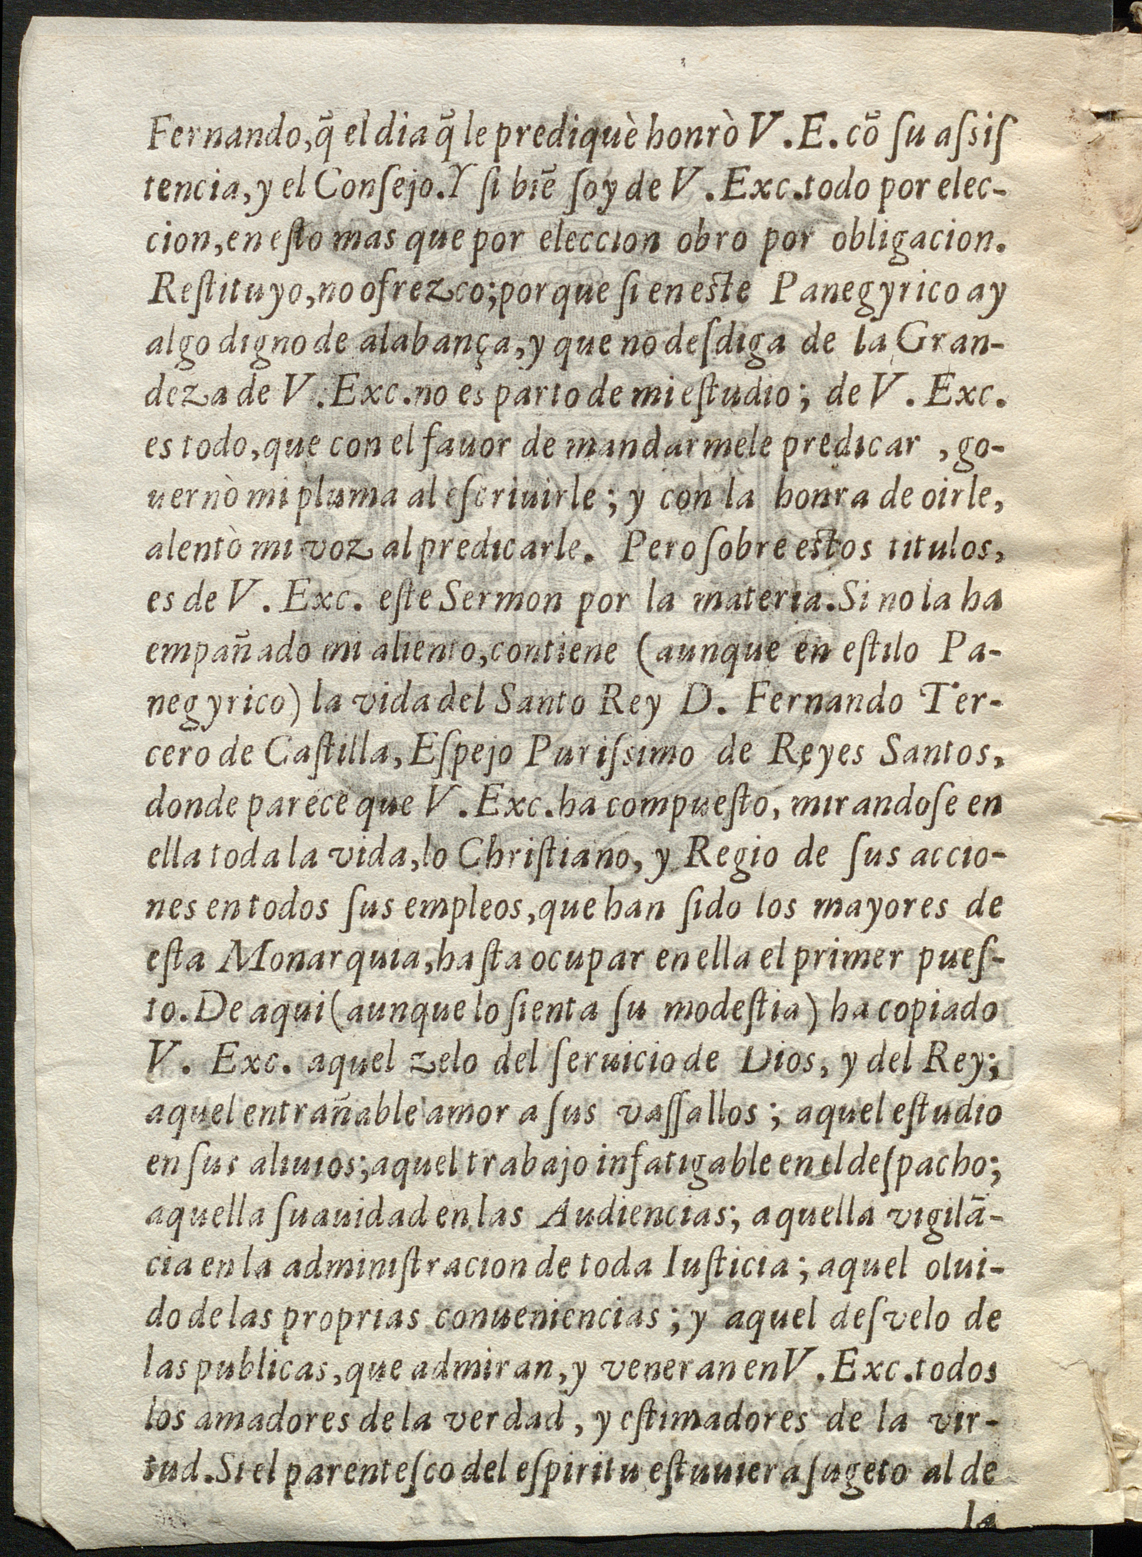 Fernando, q̃ el dia q̃ le prediquè honrò V. E. cõ ſu aſsiſ
tencia, y el Conſejo. Y ſi biẽ ſoy de V. Exc. todo por elec-
cion, en eſto mas que por eleccion obro por obligacion.
Reſtituyo, no ofrezco; porque ſi en eſte Panegyrico ay
algo digno de alabança, y que no deſdiga de la Gran-
deza de V. Exc. no es parto de mi eſtudio; de V. Exc.
es todo, que con el fauor de mandarmele predicar, go-
uernò mi pluma al eſcriuirle; y con la honra de oirle,
alentò mi voz al predicarle. Pero ſobre eſtos titulos,
es de V. Exc. eſte Sermon por la materia. Si no la ha
empañado mi aliento, contiene (aunque en eſtilo Pa-
negyrico) la vida del Santo Rey D. Fernando Ter-
cero de Caſtilla, Eſpejo Puriſsimo de Reyes Santos,
donde parece que V. Exc. ha compueſto, mirandoſe en
ella toda la vida, lo Chriſtiano, y Regio de ſus accio-
nes en todos ſus empleos, que han ſido los mayores de
eſta Monarquia, haſta ocupar en ella el primer pueſ-
to. De aqui (aunque lo ſienta ſu modeſtia) ha copiado
V. Exc. aquel zelo del ſeruicio de Dios, y del Rey;
aquel entrañable amor a ſus vaſſallos; aquel eſtudio
en ſus aliuios; aquel trabajo infatigable en el deſpacho;
aquella ſuauidad en las Audiencias; aquella vigilã-
cia en la adminiſtracion de toda Iuſticia; aquel olui-
do de las proprias conueniencias; y aquel deſvelo de
las publicas, que admiran, y veneran en V. Exc. todos
los amadores de la verdad, y eſtimadores de la vir-
tud. Si el parenteſco del eſpiritu eſtuuiera ſugeto al de
la